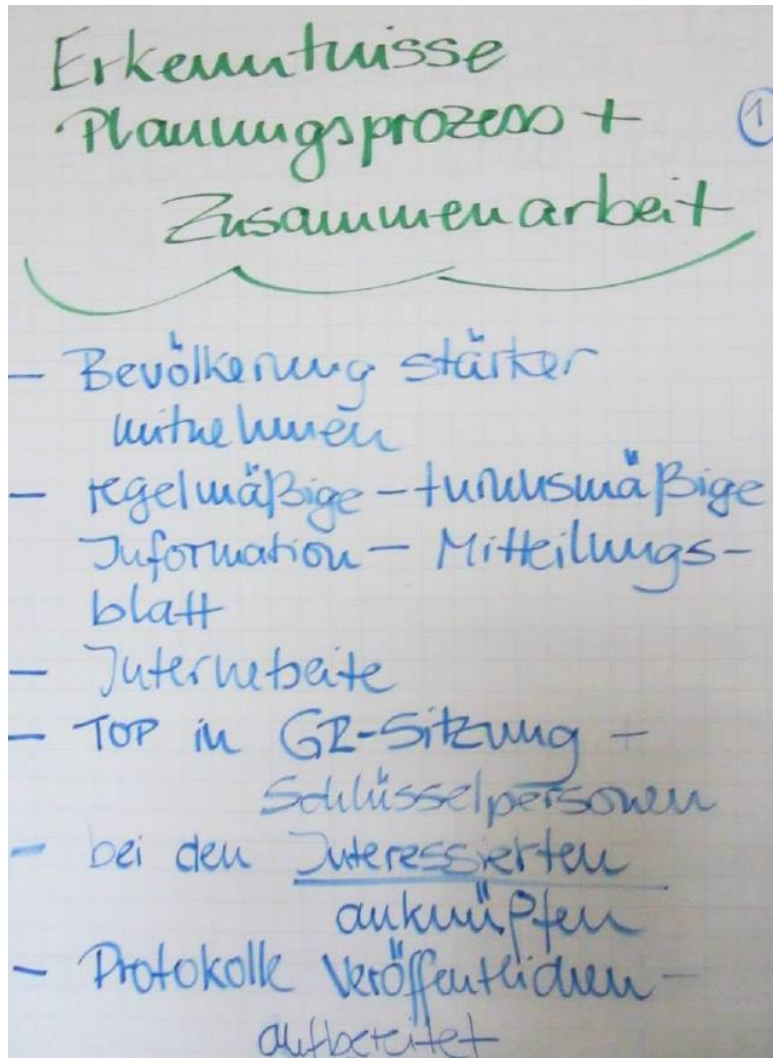 Erkenntnisse
Planungsprozess +
①
Zusammenarbeit
- Bevölkerung stärker
mitnehmen
- regelmäßige - turnusmäßige
Information - Mitteilungs-
blatt
- Internetseite
- TOP in GR-Sitzung -
Schlüsselpersonen
- bei den Interessierten
anknüpfen
- Protokolle veröffentlichen -
aufbereitet